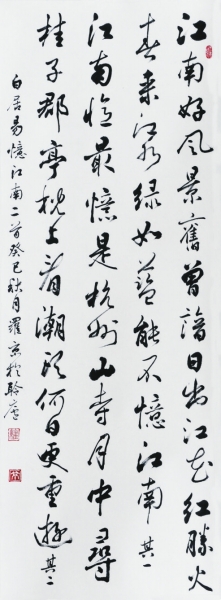 江南好风景舊曾諳日出江花紅勝火
春来江水绿如蓝能不憶江南 其一
江南憶最憶是杭州山寺月中尋
桂子郡亭枕上看潮头何日更重遊 其二
白居易憶江南二首癸巳秋月羅京於